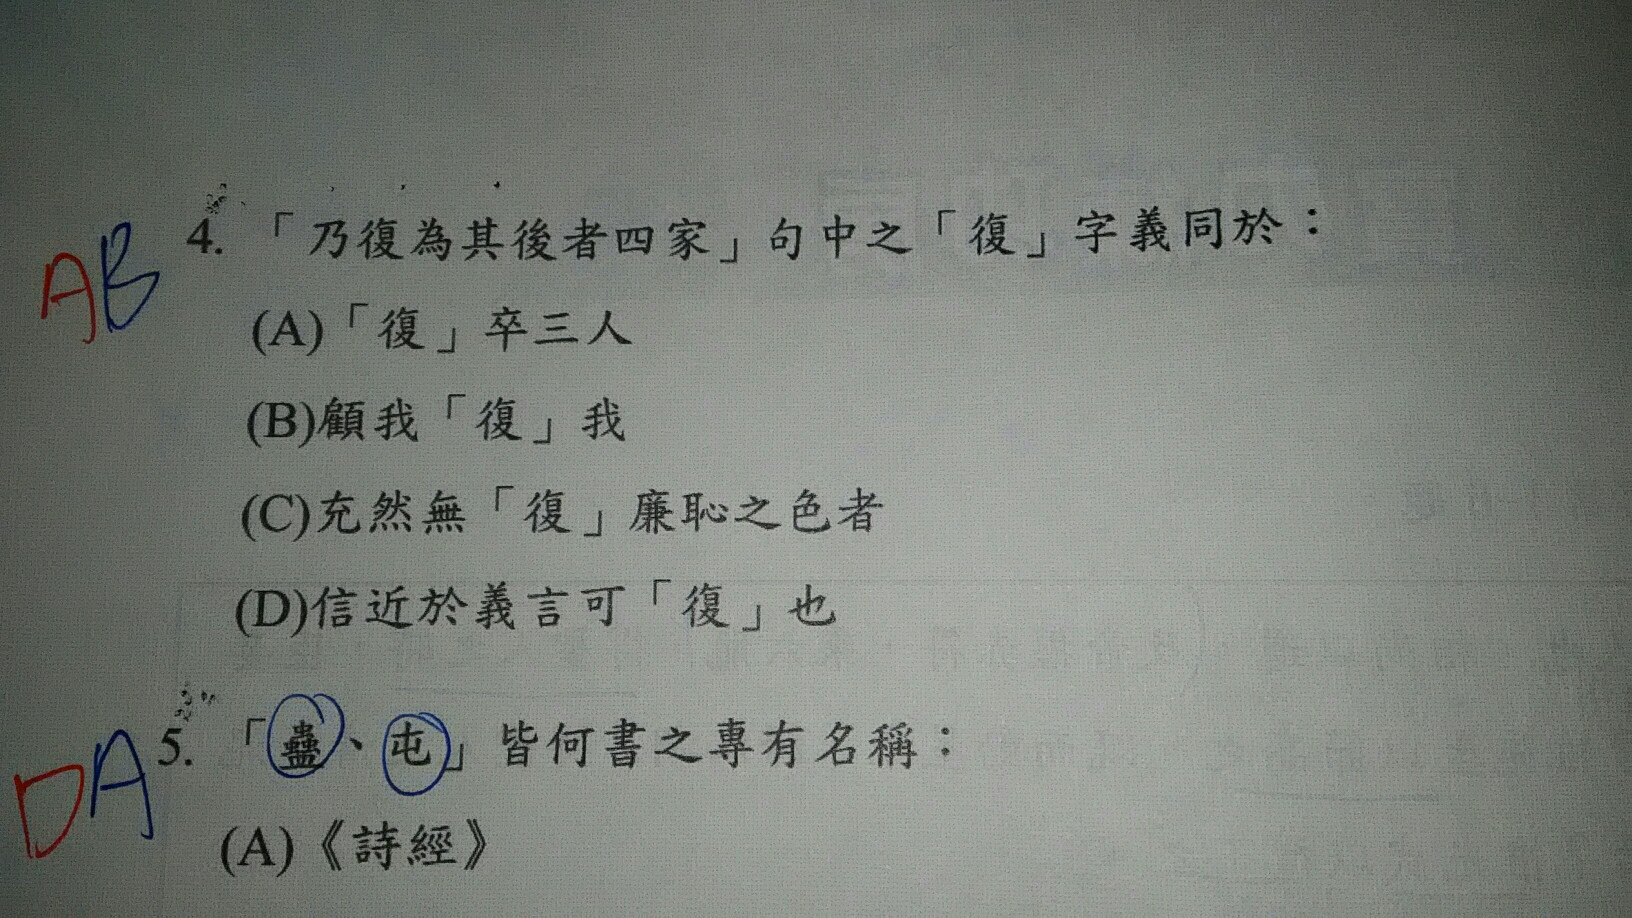 AB
4. 「乃復為其後者四家」句中之「復」字義同於：
(A)「復」卒三人
(B)顧我「復」我
(C)充然無「復」廉恥之色者
(D)信近於義言可「復」也
DA
5. 「蠱、屯」皆何書之專有名稱：
(A)《詩經》